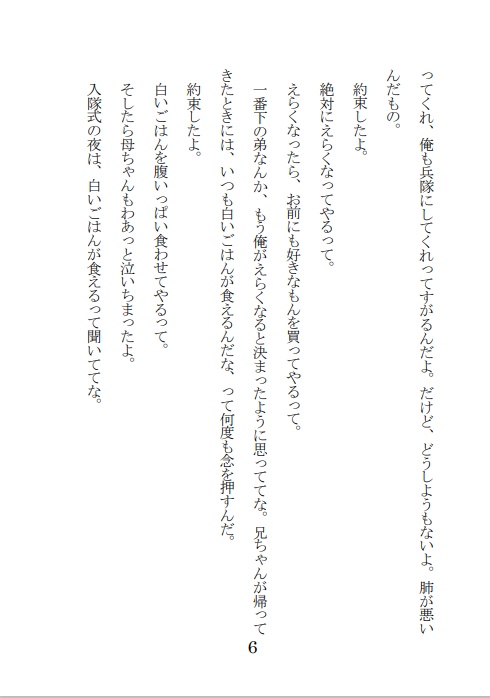 ってくれ、俺も兵隊にしてくれってすがるんだよ。だけど、どうしようもないよ。肺が悪い
んだもの。
約束したよ。
絶対にえらくなってやるって。
えらくなったら、お前にも好きなもんを買ってやるって。
一番下の弟なんか、もう俺がえらくなると決まったように思っててな。兄ちゃんが帰って
きたときには、いつも白いごはんが食えるんだな、って何度も念を押すんだ。
約束したよ。
白いごはんを腹いっぱい食わせてやるって。
そしたら母ちゃんもわあっと泣いちまったよ。
入隊式の夜は、白いごはんが食えるって聞いててな。
6